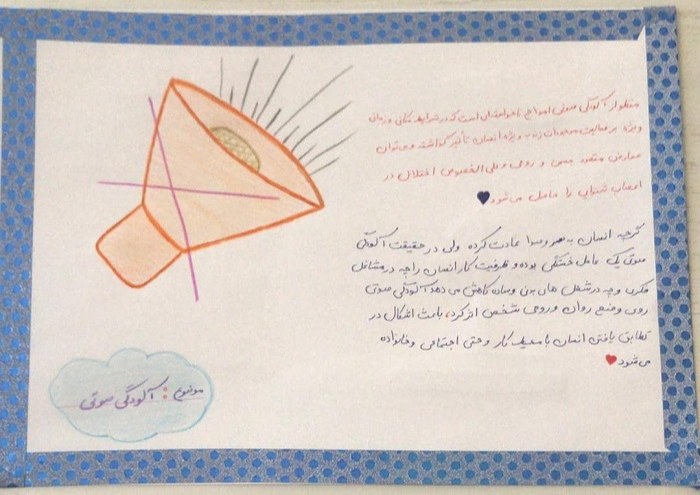 منظور از آلودگی صوتی امواج ناخواسته‌ای است که در شرایط مکانی و زمانی
ویژه بر فعالیت موجودات زنده به ویژه انسان تأثیر گذاشته و می‌توان
عوارض متعدد جسمی و روحی و علی الخصوص اختلال در
اعصاب شنوایی را حاصل می‌شود
گرچه انسان به سر و صدا عادت کرده ولی در حقیقت آلودگی
صوتی یک عامل خستگی بوده و ظرفیت کار انسان را چه در مشاغل
فکری و چه در شغل های بدنی و ساده کاهش می دهد آلودگی صوتی
روی وضع روان و روحی شخص اثر کرد، باعث اشکال در
تطابق یافتن انسان با محیط کار و حتی اجتماعی و خانواده
می شود
موضوع : آلودگی صوتی